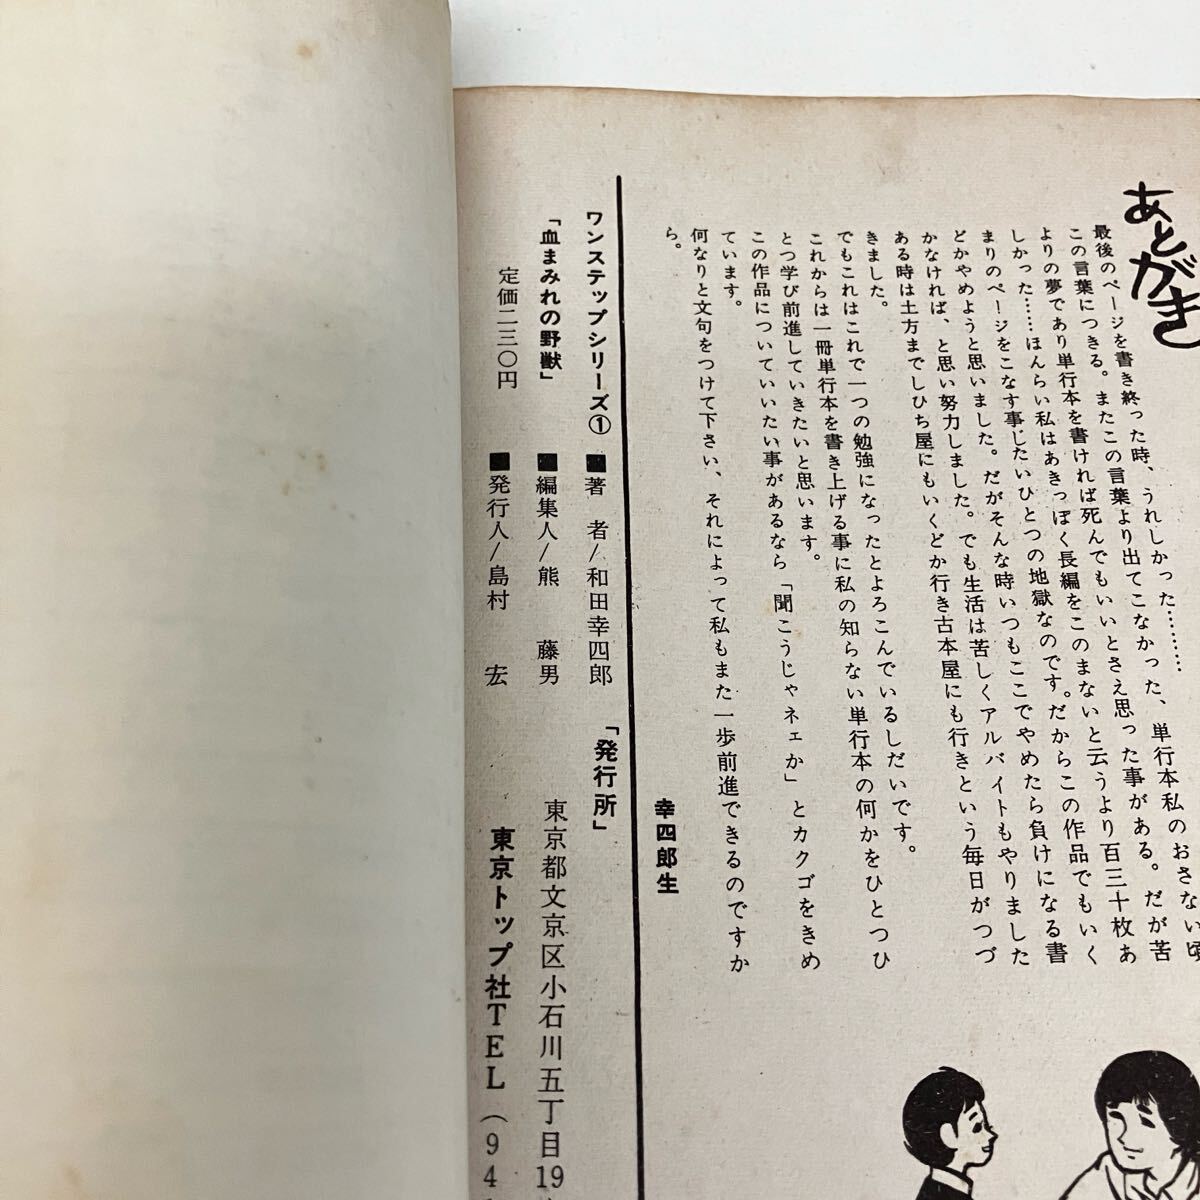 あとがき
最後のページを書き終った時、うれしかった………
この言葉につきる。またこの言葉より出てこなかった、単行本私のおさない頃
よりの夢であり単行本を書ければ死んでもいいとさえ思った事がある。だが苦
しかった……ほんらい私はあきっぽく長編をこのまないと云うより百三十枚あ
まりのページをこなす事じたいひとつの地獄なのです。だからこの作品でもいく
どかやめようと思いました。だがそんな時いつもここでやめたら負けになる書
かなければ、と思い努力しました。でも生活は苦しくアルバイトもやりました
ある時は土方までしひち屋にもいくどか行き古本屋にも行きという毎日がつづ
きました。
でもこれはこれで一つの勉強になったとよろこんでいるしだいです。
これからは一冊単行本を書き上げる事に私の知らない単行本の何かをひとつひ
とつ学び前進していきたいと思います。
この作品についていいたい事があるなら「聞こうじゃネェか」とカクゴをきめ
ています。
何なりと文句をつけて下さい、それによって私もまた一歩前進できるのですか
ら。
幸四郎生
ワンステップシリーズ①
「血まみれの野獣」
定価二三〇円
■著 者/和田幸四郎
■編集人/熊 藤男
■発行人/島村 宏
「発行所」
東京都文京区小石川五丁目19
東京トップ社TEL(94